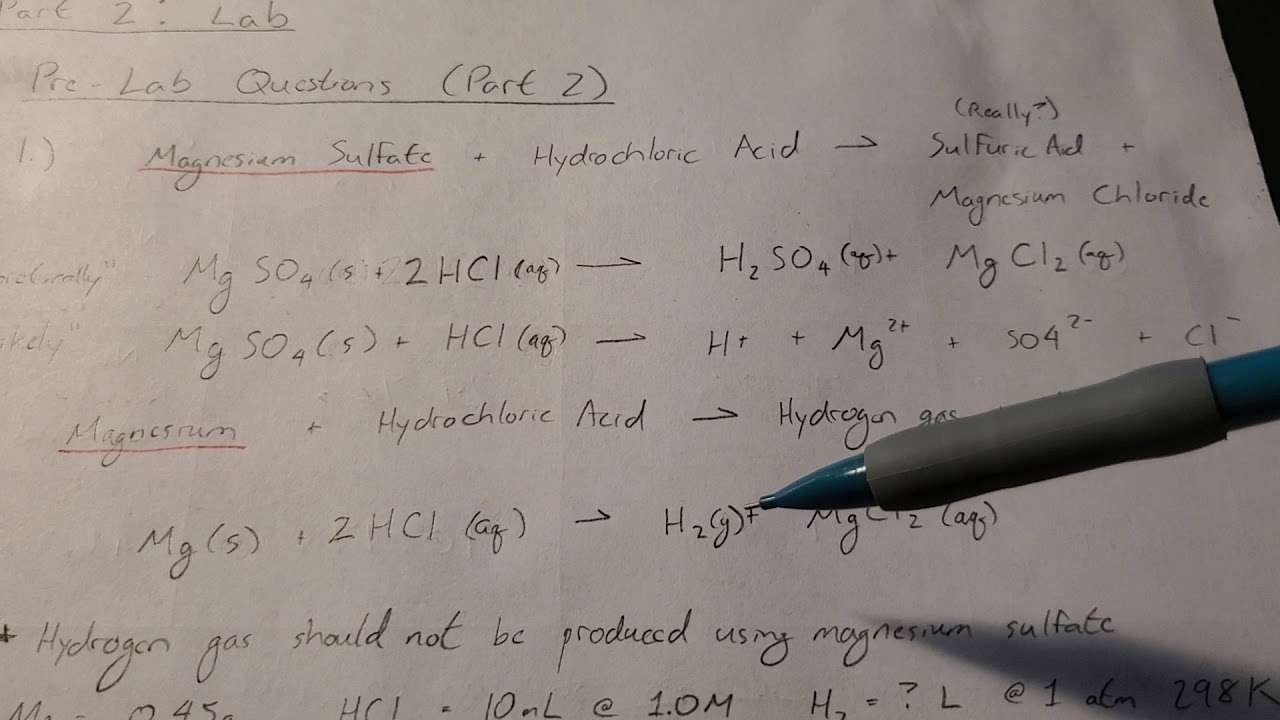 Part 2: Lab
Pre-Lab Questions (Part 2)
(Really?)
1.) Magnesium Sulfate + Hydrochloric Acid → Sulfuric Acid +
Magnesium Chloride
MgSO₄(s) + 2HCl(aq) → H₂SO₄(aq) + MgCl₂(aq)
MgSO₄(s) + HCl(aq) → H+ + Mg²⁺ + SO4²⁻ + Cl⁻
Magnesium + Hydrochloric Acid → Hydrogen gas
Mg(s) + 2HCl(aq) → H₂(g) + MgCl₂(aq)
* Hydrogen gas should not be produced using magnesium sulfate
HCl = 10mL @ 1.0M H₂ = ? L @ 1 atm 298K